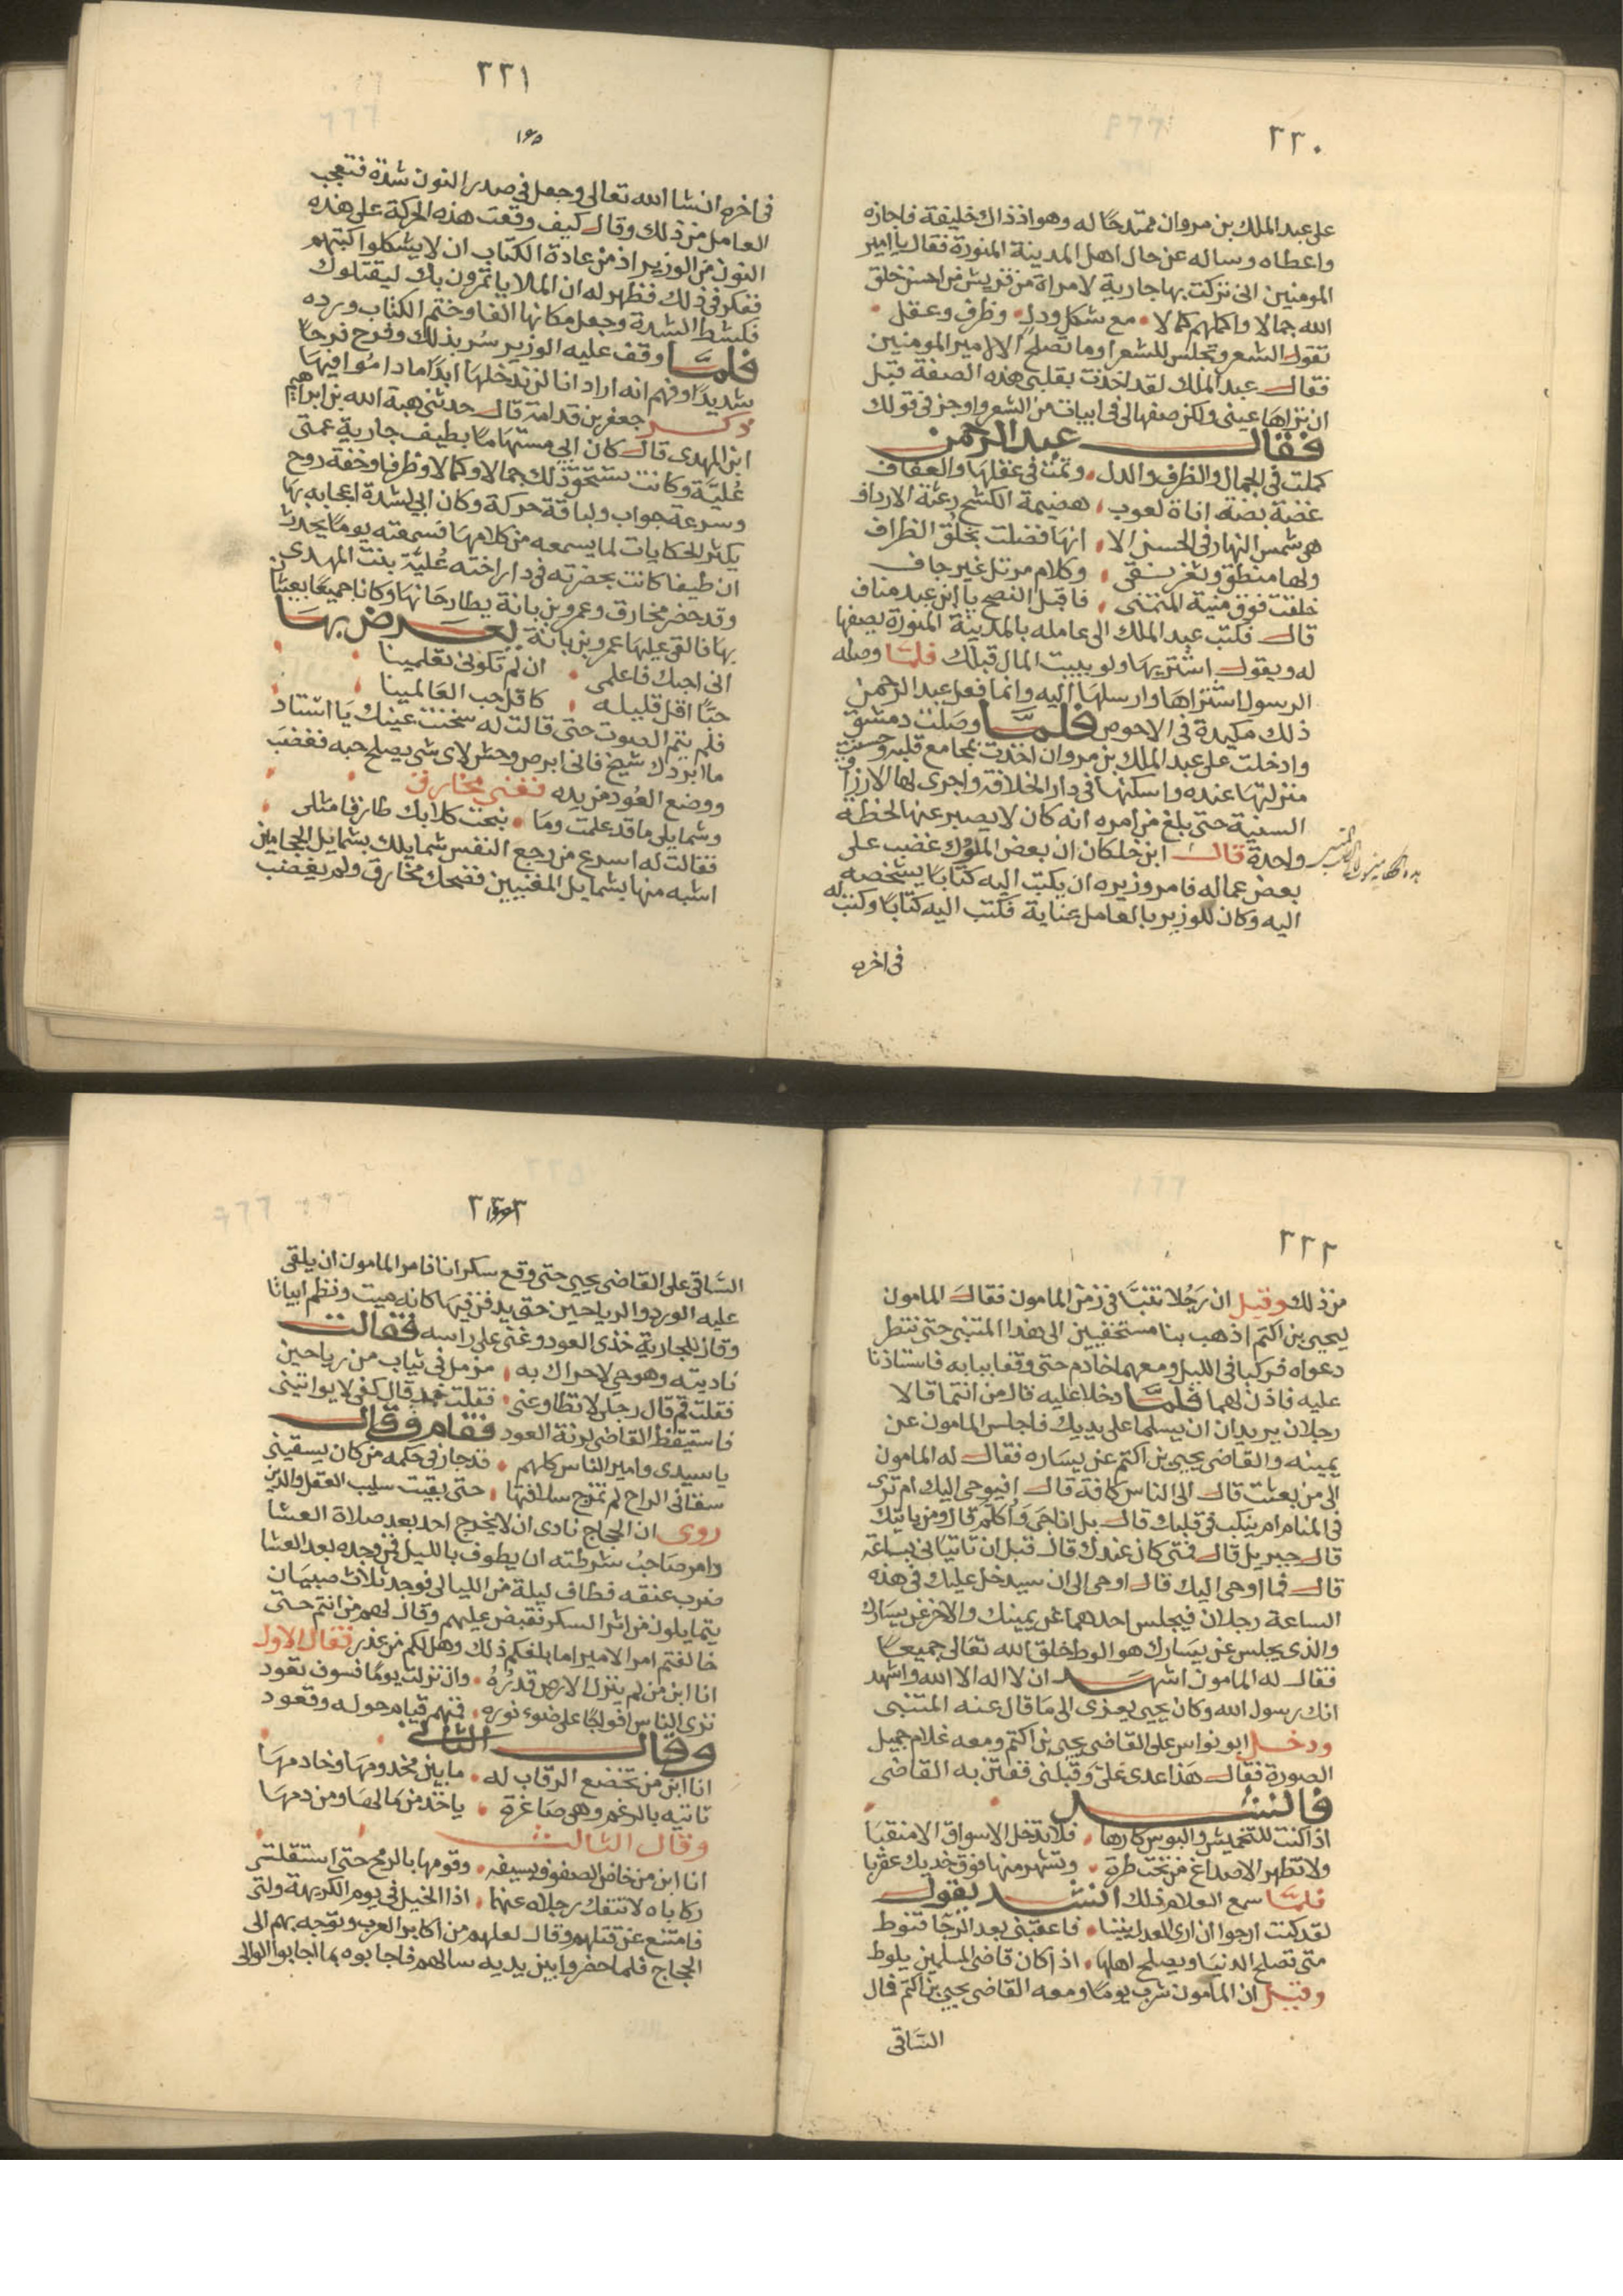 ٢٢٠
على عبد الملك بن مروان ممتدحًا له وهو اذ ذاك خليفة فاجازه
واعطاه وساله عن حال اهل المدينة المنورة فقال يا امير
المومنين انى تركت بها جارية لامراة من قريش من احسن خلق
الله جمالا واكملهم كمالا مع شكل ودل وظرف وعقل
تقول الشعر وتجلس للشعرا وما تصلح الا لامير المومنين
فقال عبد الملك لقد اخذت بقلبى هذه الصفة قبل
ان تراها عينى ولكن صفها لى فى ابيات من الشعر واوجز فى قولك
فقال عبد الرحمن
كملت فى الجمال والظرف والدل وتمت فى عقلها والعفاف
غضة بضة اناة لعوب هضيمة الكشح رعثة الارداف
هى شمس النهار فى الحسن الا انها فضلت بخلق الظراف
ولها منطق وثغر نقى وكلام مرتل غير جاف
خلقت فوق منية المتمنى فاقبل النصح يا ابن عبد مناف
قال فكتب عبد الملك الى عامله بالمدينة المنورة يصفها
له ويقول اشتريها ولو ببيت المال قبلك فلما وصله
الرسول اشتراها وارسلها اليه وانما فعل عبد الرحمن
ذلك مكيدة فى الاحوص فلما وصلت دمشق
وادخلت على عبد الملك بن مروان اخذت بمجامع قلبه وحسنت
منزلتها عنده واسكنها فى دار الخلافة واجرى لها الارزاق
السنية حتى بلغ من امره انه كان لا يصبر عنها لحظة
واحدة قال ابن خلكان ان بعض الملوك غضب على
بعض عماله فامر وزيره ان يكتب اليه كتابًا يشخصه
اليه وكان للوزير بالعامل عناية فكتب اليه كتابًا وكتب له
فى اخره
٢٢١
١٦٥
فى اخره ان شا الله تعالى وجعل فى صدر النون شدة فتعجب
العامل من ذلك وقال كيف وقعت هذه الحركة على هذه
النون من الوزير اذ من عادة الكتاب ان لا يشكلوا كتبهم
ففكر فى ذلك فظهر له ان الملا ياتمرون بك ليقتلوك
فكشط الشدة وجعل مكانها الفا وختم الكتاب ورده
فلما وقف عليه الوزير سُر بذلك وفرح فرحًا
شديدًا وفهم انه اراد انا لن ندخلها ابدًا ما داموا فيها
ذكر جعفر بن قدامة قال حدثنى هبة الله بن ابراهيم
ابن المهدى قال كان ابى مستهامًا بطيف جارية عمتى
عُليَّة وكانت تستحق ذلك جمالا وكمالا وظرفا وخفة روح
وسرعة جواب ولباقة حركة وكان ابى لشدة اعجابه بها
يكثر الحكايات لما يسمعه من كلامها فسمعته يومًا يحدث
ان طيفا كانت بحضرته فى دار اخته عُليَّة بنت المهدى
وقد حضر مخارق وعمرو بن بانة يطارحانها وكانا جميعًا يعبثان
بها فالقى عليها عمرو بن بانة يعرض بها
انى احبك فاعلمى ان لم تكونى تعلمينا
حبًّا اقل قليله كاقل حب العالمينا
فلم يتم الصوت حتى قالت له سخنت عينك يا استاد
ما ابردك شيخ فانى ابرص وحش لاى شى يصلح حبه فغضب
ووضع العُود من يده فغنى مخارق
وشمايلى ما قد علمت وما نبحت كلابك طارقا مثلى
فقالت له اسرع من رجع النفس شمايلك بشمايل الحجامين
اشبه منها بشمايل المغنيين فضحك مخارق ولم يغضب
٢٢٢
من ذلك وقيل ان رَجُلا تنبَّا فى زمن المامون فقال المامون
ليحيى بن اكثم اذهب بنا مستخفيين الى هذا المتنبى حتى ننظر
دعواه فركبا فى الليل ومعهما خادم حتى وقفا ببابه فاستاذنا
عليه فاذن لهما فلما دخلا عليه قال من انتما قالا
رجلان يريدان ان يسلما على يديك فاجلس المامون عن
يمينه والقاضى يحيى بن اكثم عن يساره فقال له المامون
الى من بعثت قال الى الناس كافة قال افيوحى اليك ام ترى
فى المنام ام ينكت فى قلبك وقال بل اناجى وأُكلم قال ومن ياتيك
قال جبريل قال فمتى كان عندك قال قبل ان تاتيانى بساعة
قال فما اوحى اليك قال اوحى الى ان سيدخل عليك فى هذه
الساعة رجلان فيجلس احدهما عن يمينك والاخر عن يسارك
والذى يجلس عن يسارك هو الوط خلق الله تعالى جميعًا
فقال له المامون اشهد ان لا اله الا الله واشهد
انك رسول الله وكان يحيى يعزى الى ما قال عنه المتنبى
ودخل ابو نواس على القاضى يحيى بن اكثم ومعه غلام جميل
الصورة فقال هذا عدى علىّ وقبلنى ففتن به القاضى
فانشد
اذا كنت للتخميش والبوس كارها فلا تدخل الاسواق الا منقبا
ولا تظهر الاصداغ من تحت طرة وتشهر منها فوق خديك عقربا
فلما سمع الغلام ذلك انشد يقول
لقد كنت ارجوا ان ارى العدل بيننا فاعقبنى بعد الرجا قنوط
متى تصلح الدنيا ويصلح اهلها اذا كان قاضى المسلمين يلوط
وقيل ان المامون شرب يومًا ومعه القاضى يحيى بن اكثم فمال
السَّاقى
السَّاقى على القاضى يحيى حتى وقع سكرانا فامر المامون ان يلقى
عليه الورد والرياحين حتى يدفن فيها كانه ميت ونظم ابياتا
وقال للجارية خذى العود وغنى على راسه فقالت
ناديته وهو حى لا حراك به مزمل فى ثياب من رياحين
فقلت قم قال رجلى لا تطاوعنى فقلت خذ قال كفى لا يواتينى
فاستيقظ القاضى لرنة العود فقام وقال
يا سيدى وامير الناس كلهم قد جار فى حكمه من كان يسقينى
سقانى الراح لم تمزج سلافتها حتى بقيت سليب العقل والدين
روى ان الحجاج نادى ان لا يخرج احد بعد صلاة العشا
وامر صاحبُ شرطته ان يطوف بالليل فمن وجده بعد العشا
ضرب عنقه فطاف ليلة من الليالى فوجد ثلاث صبيان
يتمايلون من اثر السكر فقبض عليهم وقال لهم من انتم حتى
خالفتم امر الامير اما بلغكم ذلك وهل لكم من عذر فقال الاول
انا ابن من لم ينزل الارض قدرُهُ وان نزلت يومًا فسوف تعود
نرى الناس افواجًا على ضوء نوره فمنهم قيام حوله وقعود
وقال الثانى
انا ابن من تخضع الرقاب له ما بين مخدومها وخادمها
تاتيه بالرغم وهى صاغرة ياخذ من مالها ومن دمها
وقال الثالث
انا ابن من خاض الصفوف بسيفه وقومها بالرمح حتى استقلت
ركاباه لا تنفك رجلاه عنهما اذا الخيل فى يوم الكريهة ولت
فامتنع عن قتلهم وقال لعلهم من اكابر العرب وتوجه بهم الى
الحجاج فلما حضروا بين يديه سالهم فاجابوه بما اجابوا الوالى